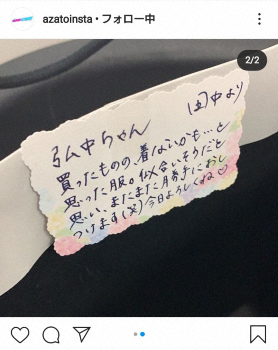 azatoinsta • フォロー中
2/2
弘中ちゃん
田中より
買ったものの、着ないかも…と
思った服。似合いそうだと
思い、またまた勝手におし
つけます(笑)今日よろしくね♡